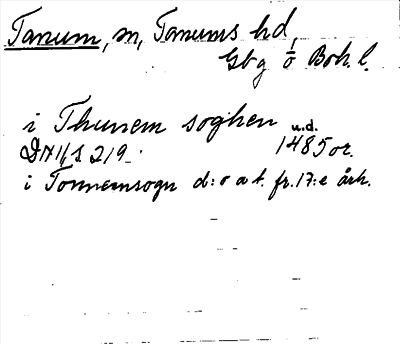 Tanum, sn, Tanums hd,
Gbg o Boh. l.
i Thunem soghen u.d.
1485 or.
DN II, s. 219.
i Tonnemsogn d:o a t. fr. 17:e årh.